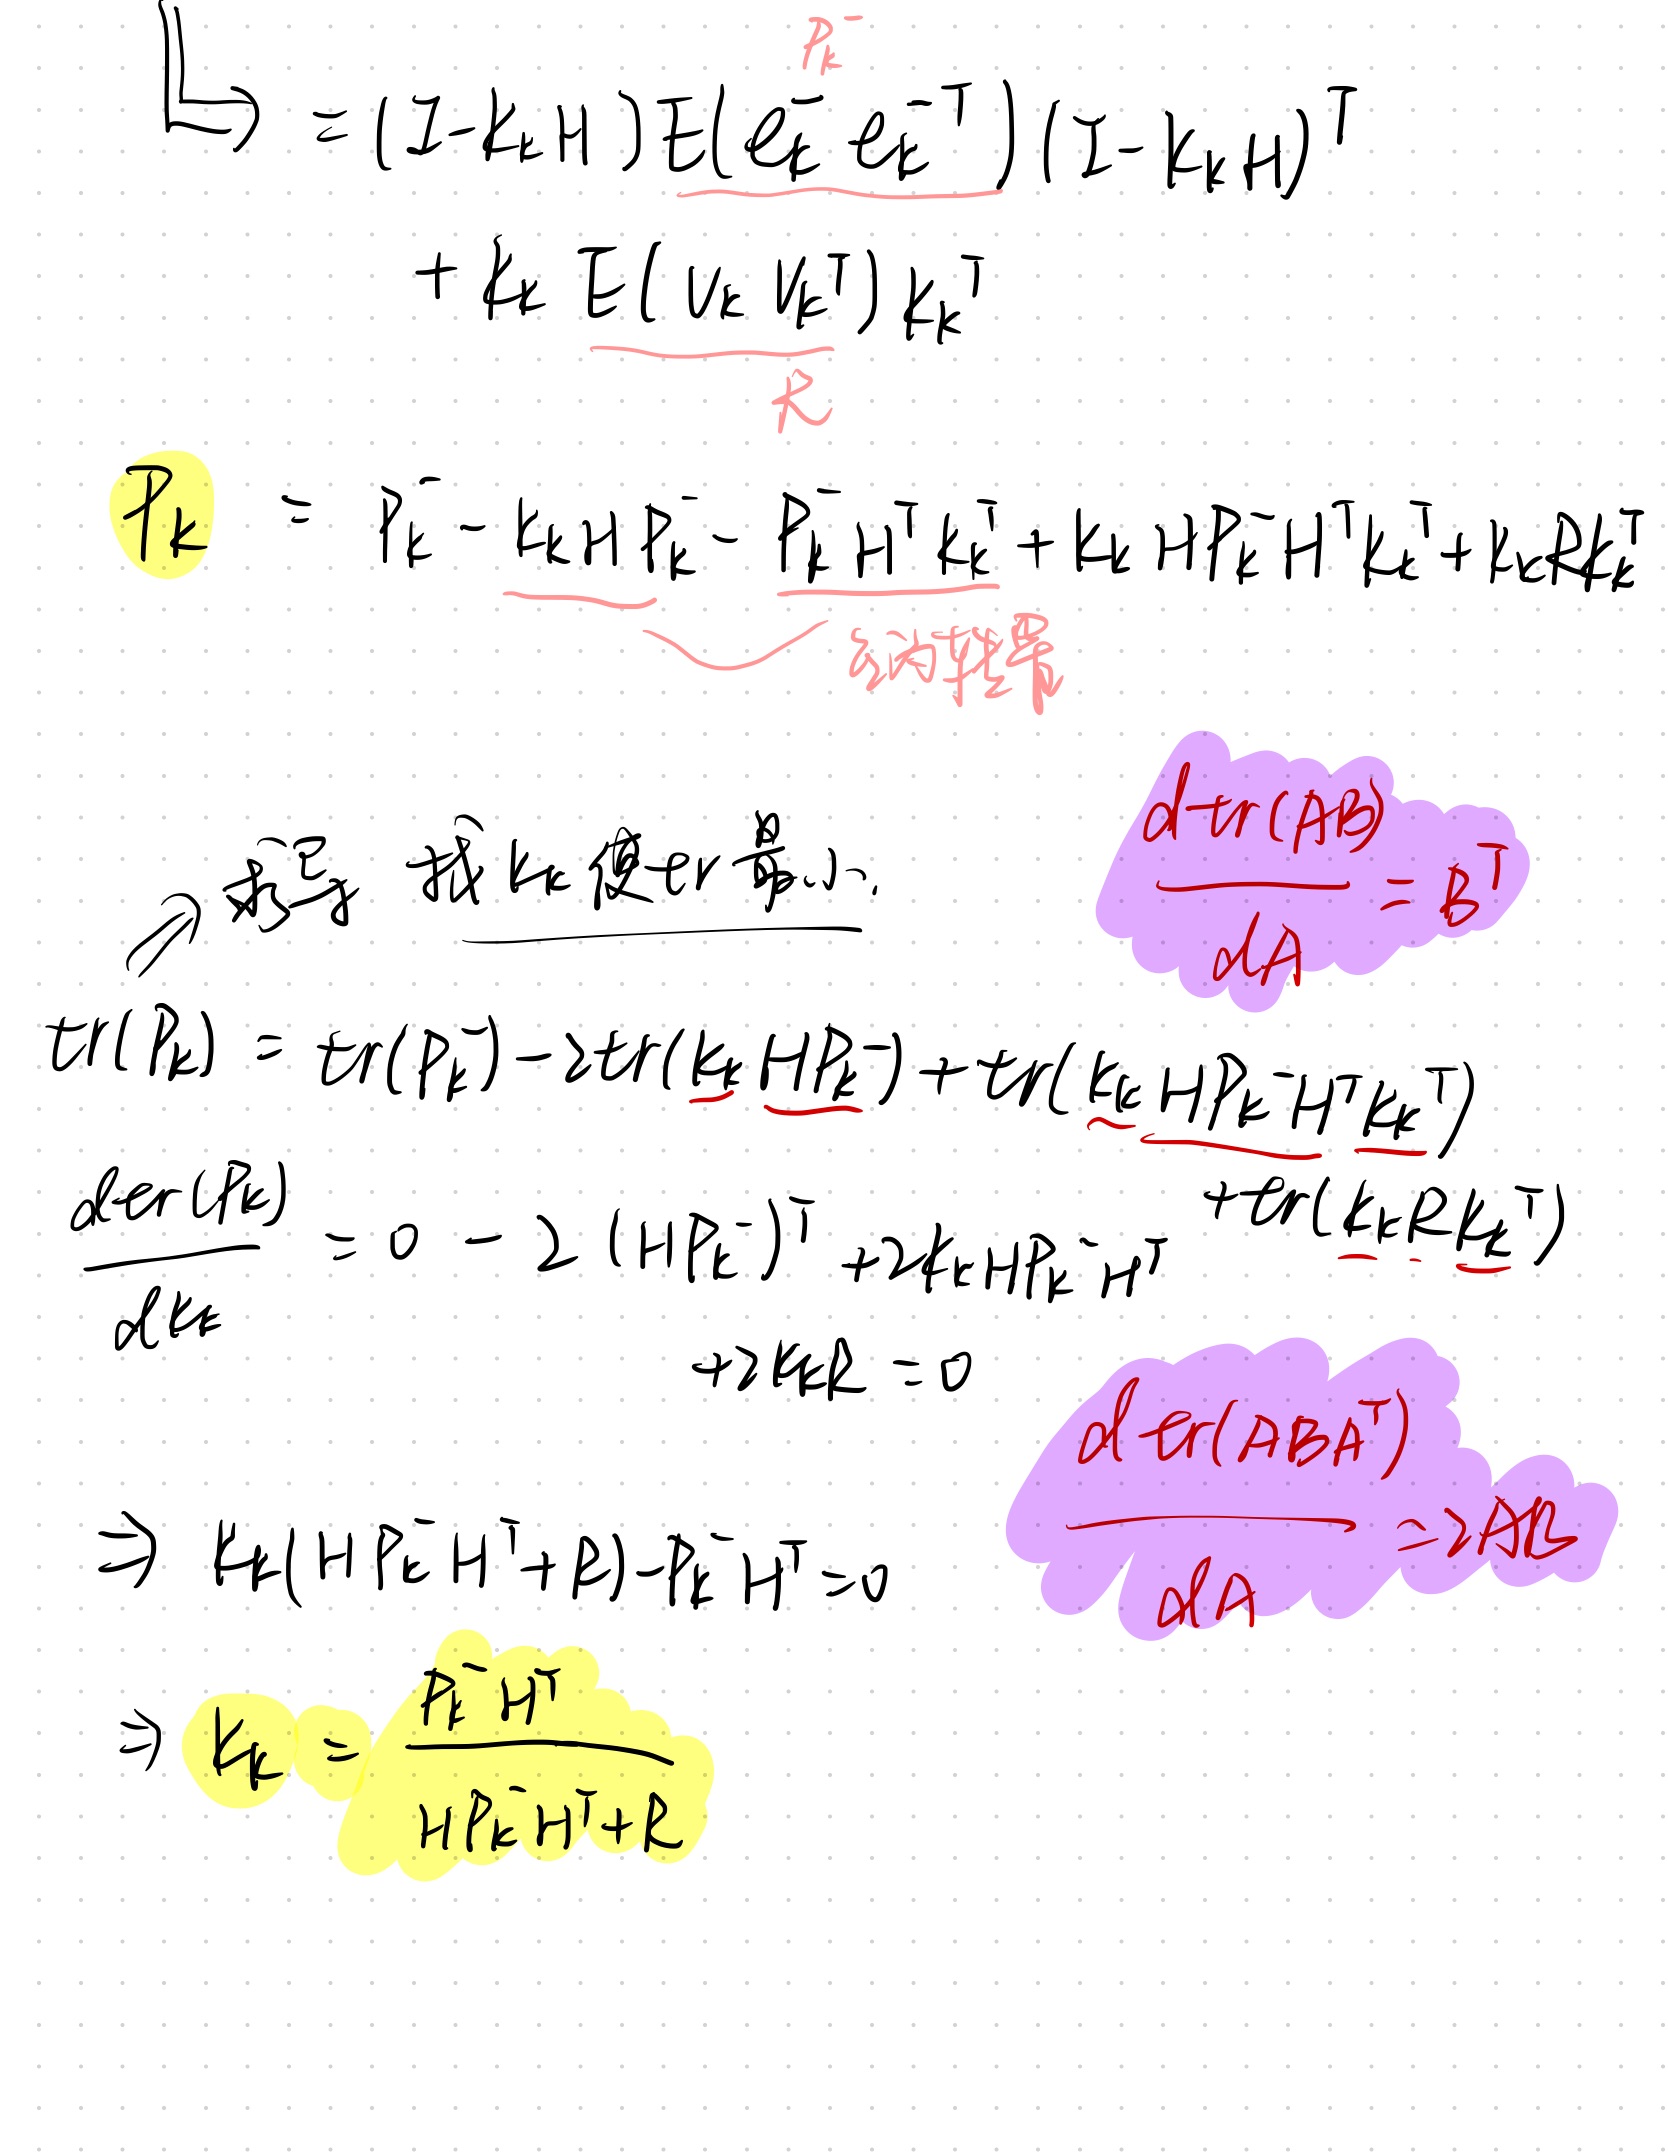 P_k^-
= (I - K_k H) E(e_k^- e_k^{-T}) (I - K_k H)^T
+ K_k E(V_k V_k^T) K_k^T
R
P_k = P_k^- - K_k H P_k^- - P_k^- H^T K_k^T + K_k H P_k^- H^T K_k^T + K_k R K_k^T
互为转置
d tr(AB) / dA = B^T
求导 找 K_k 使 tr 最小.
tr(P_k) = tr(P_k^-) - 2tr(K_k H P_k^-) + tr(K_k H P_k^- H^T K_k^T)
+ tr(K_k R K_k^T)
d tr(P_k) / dK_k = 0 - 2 (H P_k^-)^T + 2K_k H P_k^- H^T
+ 2K_k R = 0
d tr(ABA^T) / dA = 2AB
⇒ K_k(H P_k^- H^T + R) - P_k^- H^T = 0
⇒ K_k = P_k^- H^T / H P_k^- H^T + R